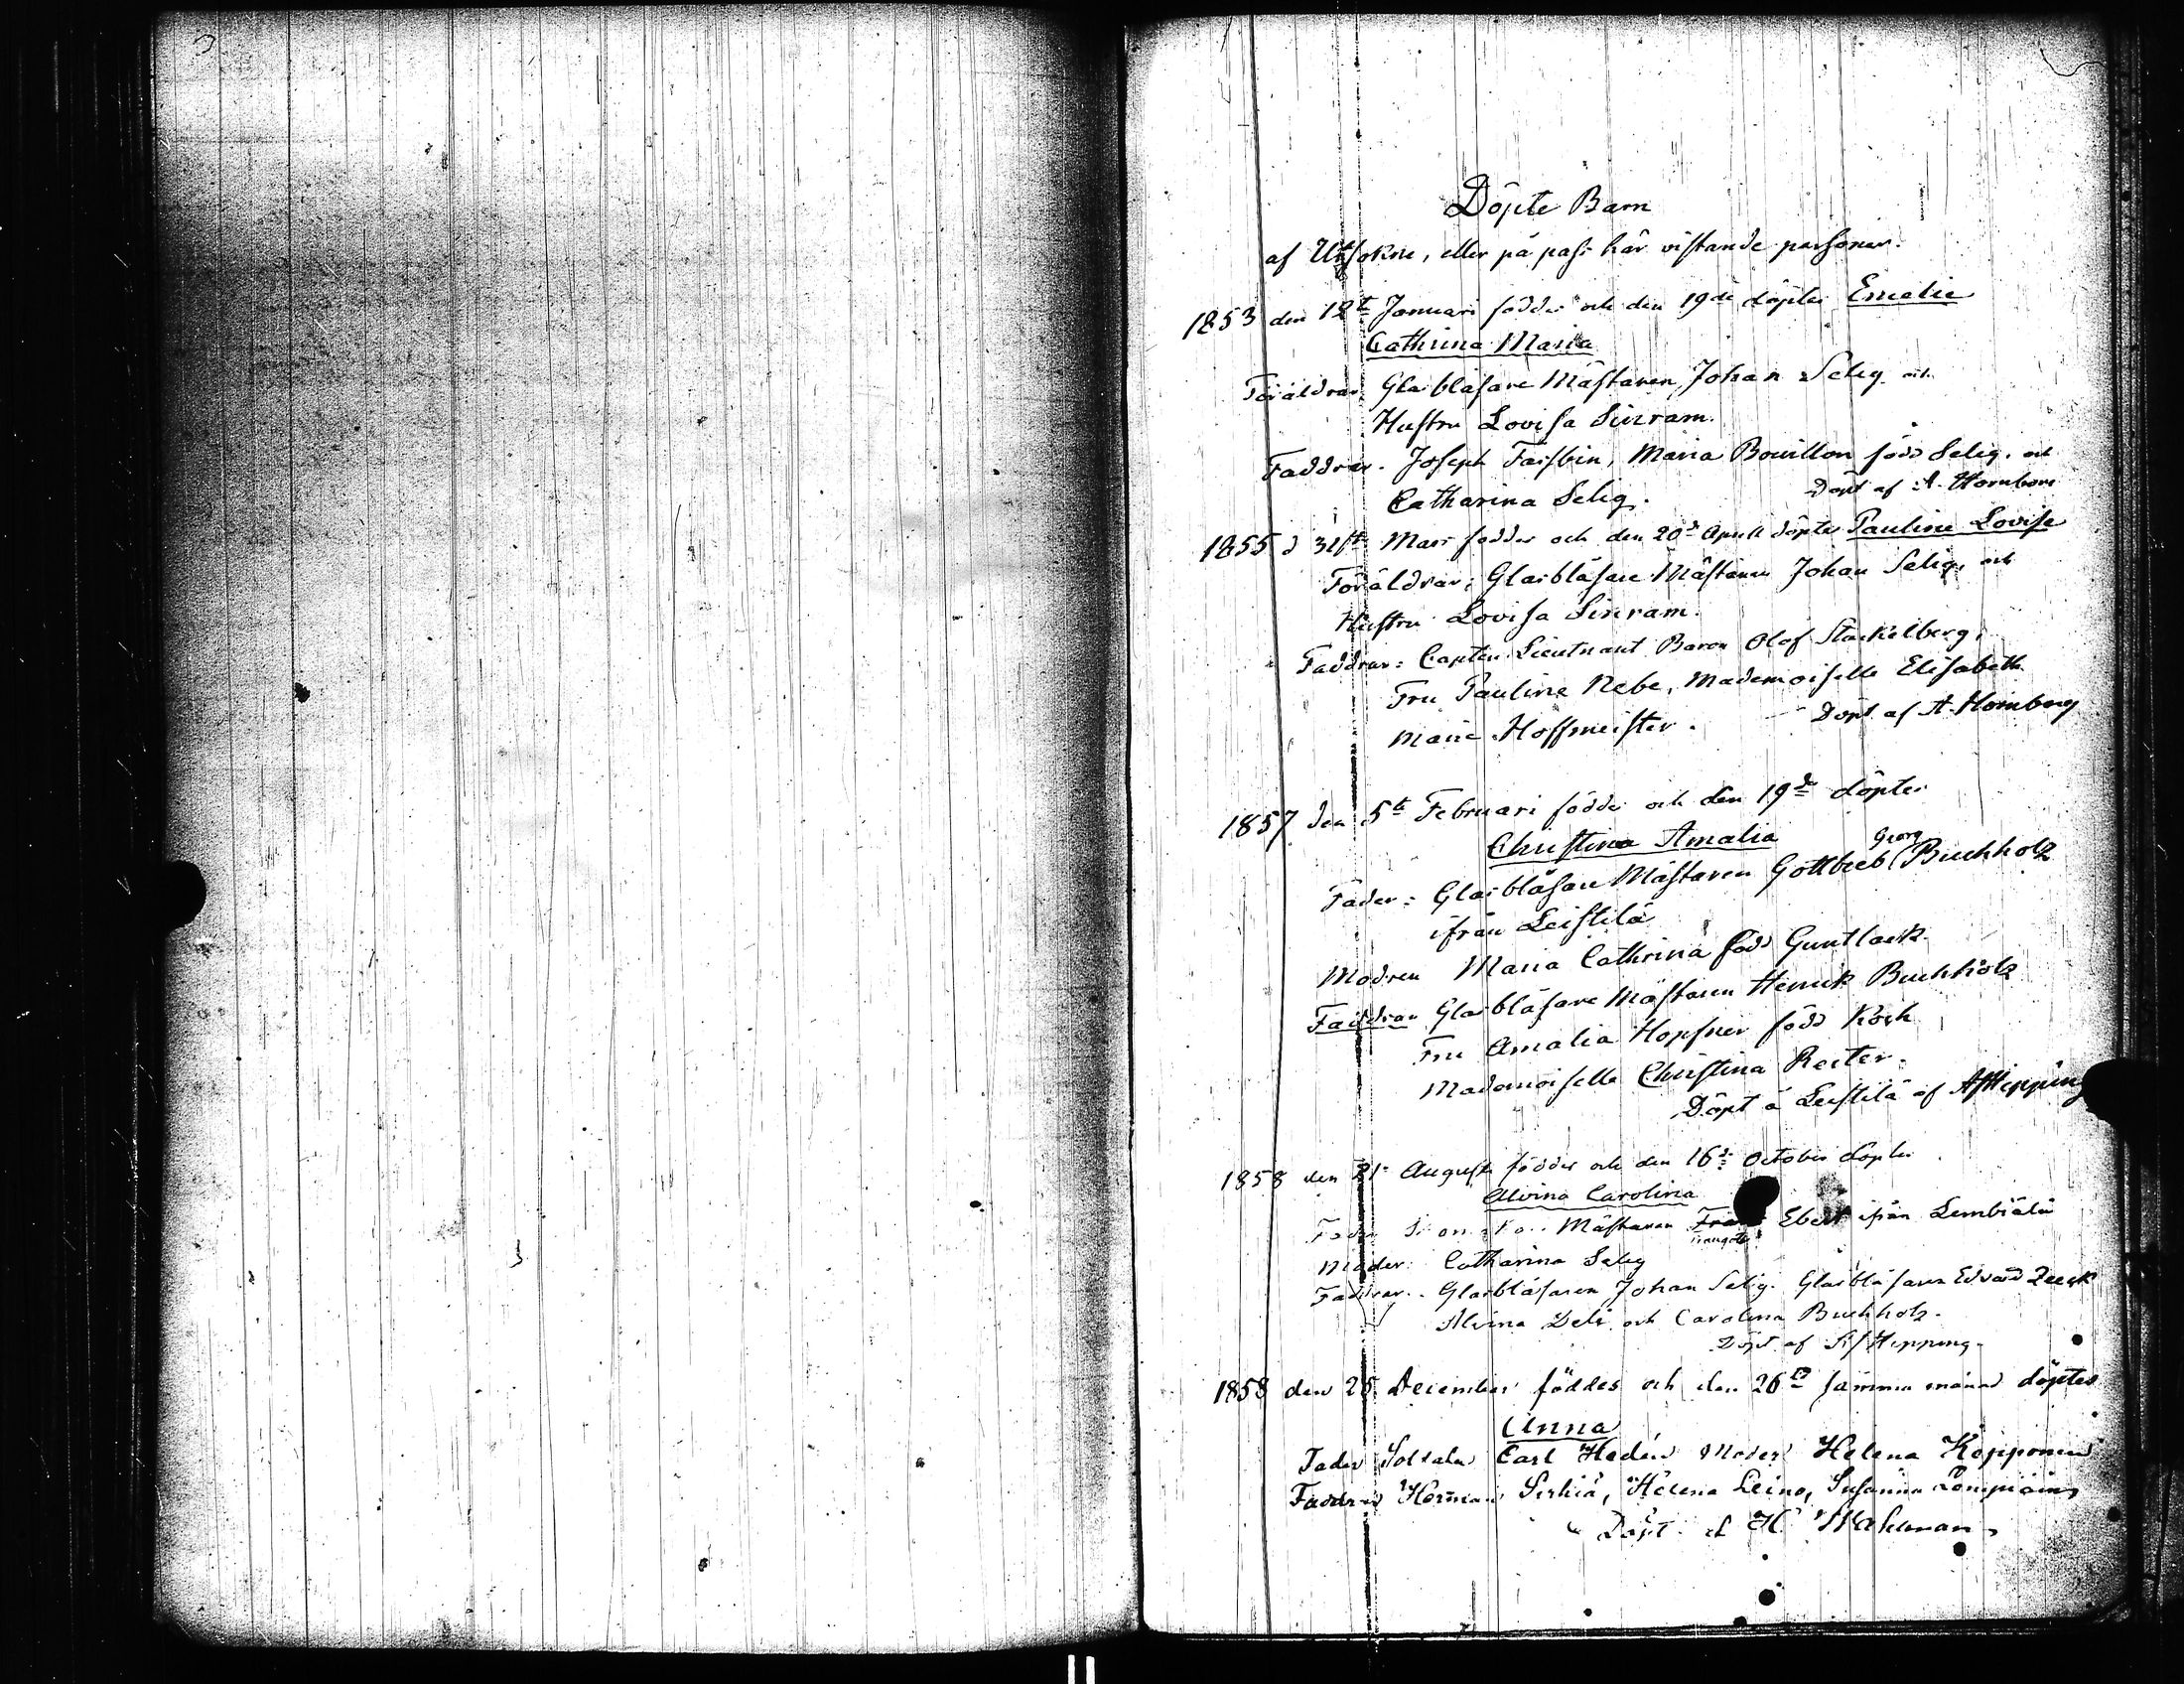 Döpte Barn
af Utsokne, eller på pass här vistande personer.
1853 den 12te Januari föddes och den 19de döptes Emelie
Cathrina Maria
Föräldrar Glasblåsare Mästaren Johan Selig och
Hustru Lovisa Sinram.
Faddrar. Joseph Faistbin, Maria Bouillon född Selig. och
Catharina Selig. Döpt af A. Hornborg
1855 d 31ste Mars föddes och den 20de April döptes Pauline Lovise
Föräldrar: Glasblåsare Mästaren Johan Selig, och
Hustru Lovisa Sinram.
Faddrar: Capten Lieutnant Baron Olof Stackelberg,
Fru Pauline Nebe, Mademoiselle Elisabeth
Marie Hoffmeister. Döpt af A. Hornborg
1857 den 5te Februari föddes och den 19de döptes
Christina Amalia
Georg
Fader: Glasblåsare Mästaren Gottlieb Buchholz
ifrån Leistilä
Modren Maria Cathrina född Guntlack
Faddrar Glasblåsare Mästaren Henrik Buchholz
Fru Amalia Hopfner född Koch
Mademoiselle Christina Reiter.
Döpt å Leistilä af Hipping
1858 den 21 Augusti föddes och den 16de October döptes
Alvina Carolina
Fader Mästaren Ebert ifrån Lembiälä
Moder: Catharina Selig
Faddrar. Glasblåsaren Johan Selig. Glasblåsaren Edvard Zeeck
Alvina Deli och Carolina Buchholz.
Döpt af Hipping.
1858 den 25 December föddes och den 26te samma månad döptes
Anna
Fader Soldaten Carl Hedén Moder Helena Kopponen
Faddrar Herman Sirkiä, Helena Leino, Susanna Lempiäin
Döpt af H. Wahlman